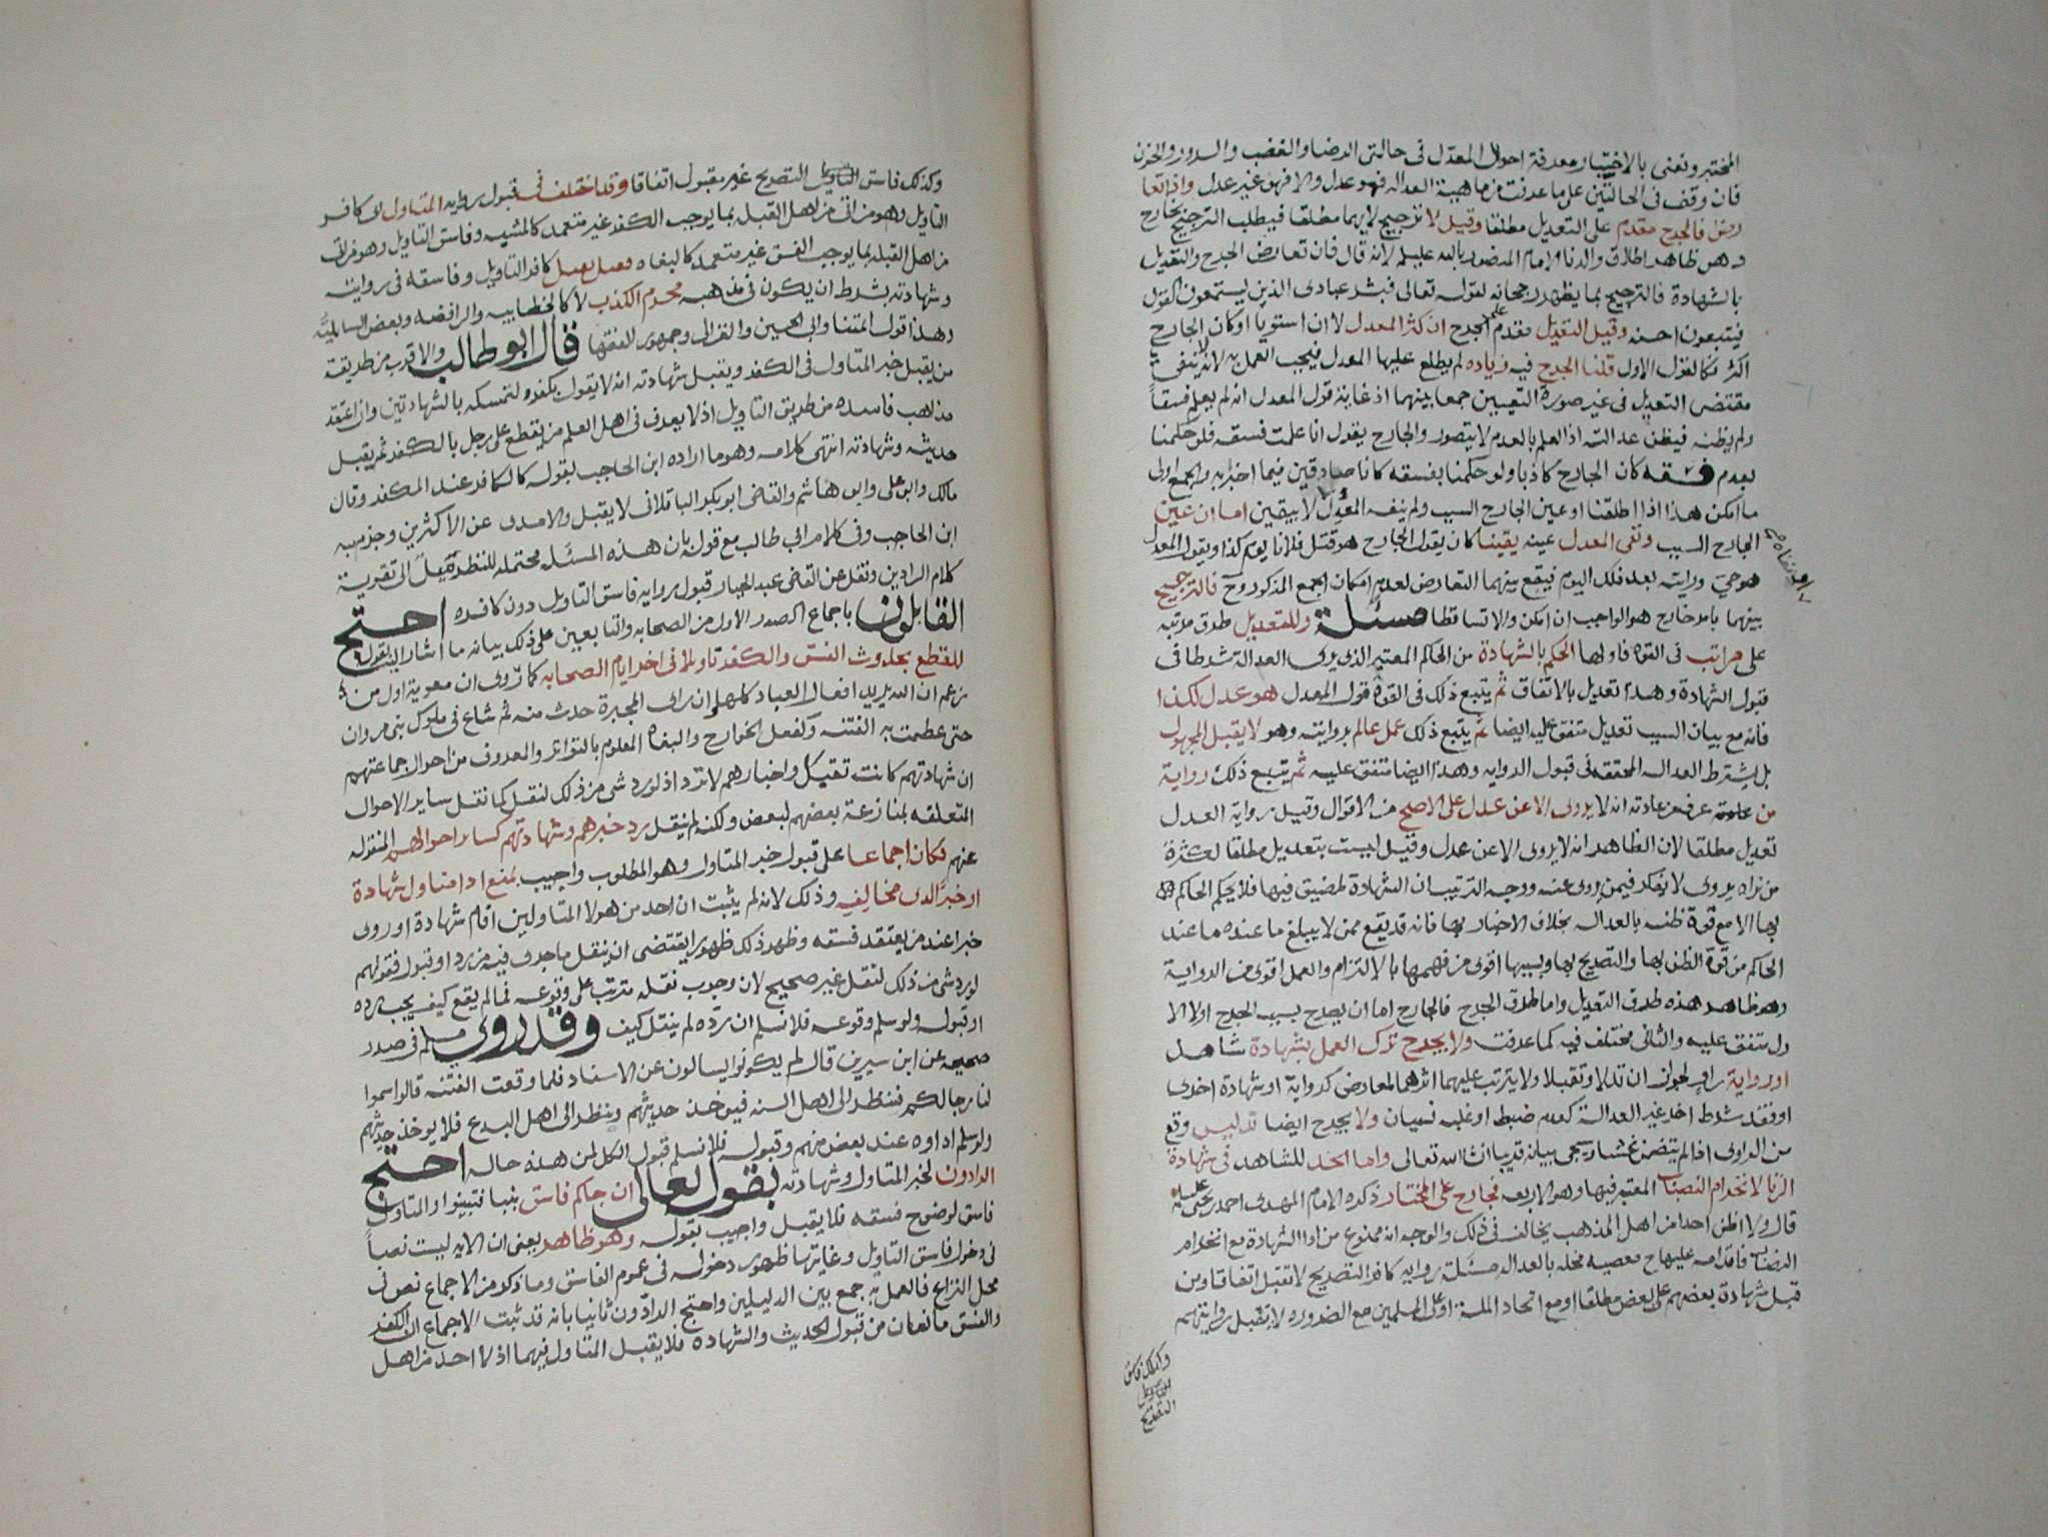 المختبر ونعنى بالاختبار معرفة احوال المعدل فى حالتى الرضا والغضب والسرور والحزن
فان وقف فى الحالتين على ما عرفت من ماهية العداله فهو عدل والا فهو غير عدل واذا تعا
رض فالجرح مقدم على التعديل مطلقا وقيل لا ترجيح لايهما مطلقا فيطلب الترجيح بخارج
وهو ظاهر اطلاق والدنا الامام المنصور بالله عليلم لانه قال فان تعارض الجرح والتعديل
بالشهادة فالترجيح بما يظهر رجحانه لقوله تعالى فبشر عبادى الذين يستمعون القول
فيتبعون احسنه وقيل التعديل مقدم على الجرح ان كثر المعدل لا ان استويا او كان الجارح
اكثر فكالقول الاول قلنا الجرح فيه زياده لم يطلع عليها المعدل فيجب العمل به لانه لا ينفى
مقتضى التعديل فى غير صورة التعيين جمعا بينهما اذ غاية قول المعدل انه لم يعلم فسقا
ولم يظنه فيظن عدالته اذ العلم بالعدم لا يتصور والجارح يقول انا علمت فسقه فلو حكمنا
بعدم فسقه كان الجارح كاذبا ولو حكمنا بفسقه كانا صادقين فيما اخبرا به والجمع اولى
ما امكن هذا اذا اطلقنا او عين الجارح السبب ولم ينفه المعدل لا بيقين اما ان عين
الجارح السبب ونفى المعدل عينه يقينا كان يقول الجارح هو قتل فلانا يوم كذا ويقول المعدل
هو حي ورايته بعد ذلك اليوم فيقع بينهما التعارض لعدم امكان الجمع المذكور وح فالترجيح
بينهما بامر خارج هو الواجب ان امكن والا تساقطا مسئلة وللتعديل طرق مرتبه
على مراتب فى القوه فاولها الحكم بالشهادة من الحاكم المعتبر الذى يرى العدالة شرطا فى
قبول الشهادة وهذا تعديل بالاتفاق ثم يتبع ذلك فى القوة قول المعدل هو عدل لكذا
فانه مع بيان السبب تعديل متفق عليه ايضا ثم يتبع ذلك عمل عالم بروايته وهو لا يقبل المجهول
بل يشترط العداله المحققه فى قبول الروايه وهذا ايضا متفق عليه ثم يتبع ذلك رواية
من عرف من عادته انه لا يروى الا عن عدل على الاصح من الاقوال وقيل رواية العدل
تعديل مطلقا لان الظاهر انه لا يروى الا عن عدل وقيل ليست بتعديل مطلقا لكثرة
من نراه يروى لا يفكر فيمن روى عنه ووجه الترتيب ان الشهادة لمضيق فيها فلا يحكم الحاكم
بها الا مع قوة ظنه بالعداله بخلاف الاخبار بها فانه قد يقع ممن لا يبلغ ما عنده ما عند
الحاكم من قوة الظن بها والتصريح بها وبسببها اقوى من فهمها بالالتزام والعمل اقوى من الرواية
وهو ظاهر هذه طرق التعديل واما طرق الجرح فالجارح اما ان يصرح بسبب الجرح اولا الا
ول متفق عليه والثانى مختلف فيه كما عرفت ولا يجرح ترك العمل بشهادة شاهد
او رواية راو لجواز ان تدلا وتقبلا ولا يترتب عليهما اثرهما لمعارض كرواية او شهادة اخرى
او فقد شرط اخر غير العدالة كعدم ضبط او غلبه نسيان ولا يجرح ايضا تدليس وقع
من الراوى اذا لم يتضمن غشا وسيجى بيانه قريبا ان شا الله تعالى واما الحد للشاهد فى شهادة
الزنا لانخرام النصاب المعتبر فيها وهو الاربعه فجارح على المختار ذكره الامام المهدى احمد بن يحيى عليلم
قال ولا اظن احدا من اهل المذهب يخالف فى ذلك والوجه انه ممنوع من اداالشهادة مع انخرام
النصاب فاقدامه عليها ح معصيه مخله بالعداله مسئلة روايه كافر التصريح لا تقبل اتفاقا ومن
قبل شهادة بعضهم على بعض مطلقا او مع اتحاد الملة او على المسلمين مع الضروره لا تقبل روايتهم
وكذلك فاسق
التاويل
التصريح
وكذلك فاسق التاويل التصريح غير مقبول اتفاقا وقد اختلف فى قبول روايه المتاول كافر
التاويل وهو من اتى من اهل القبلة بما يوجب الكفر غير متعمد كالمشبه وفاسق التاويل وهو من اتى
من اهل القبله بما يوجب الفسق غير متعمد كالبغاه فعيل كافر التاويل وفاسقه فى روايته
وشهادته بشرط ان يكون فى مذهبه محرم الكذب لا كالخطابيه والرافضه وبعض السالميه
وهذا قول ائمتنا وابى الحسين والغزالى وجمهور الفقها قال ابو طالب والاقرب من طريقة
من يقبل خبر المتاول فى الكفر ويقبل شهادته انه لا يقول بكفره لتمسكه بالشهادتين وان اعتقد
مذاهب فاسده من طريق التاويل اذ لا يعرف فى اهل العلم من يقطع على رجل بالكفر ثم يقبل
حديثه وشهادته انتهى كلامه وهو ما اراده ابن الحاجب بقوله كالكافر عند المكفر وقال
مالك وابو على وابو هاشم والقاضى ابو بكر الباقلانى لا يقبل والامدى عن الاكثرين وجزم به
ابن الحاجب وفى كلام ابى طالب مع قوله بان هذه المسئله محتمله للنظر ميل الى تقوية
كلام الرادين ونقل عن القاضى عبد الجبار قبول روايه فاسق التاويل دون كافره احتج
القابلون باجماع الصدر الاول من الصحابه والتابعين على ذلك بيانه ما اشار اليه بقوله
للقطع بحدوث الفسق والكفر تاويلا فى اخر ايام الصحابه كما روى ان معوية اول من
زعم ان الله يريد افعال العباد كلها وان راى المجبرة حدث منه ثم شاع فى ملوك بنى مروان
حتى عظمت به الفتنه وكفعل الخوارج والبغاه المعلوم بالتواتر والمعروف من احوال جماعتهم
ان شهادتهم كانت تقبل واخبارهم لا ترد اذ لو رد شى من ذلك لنقل كما نقل ساير الاحوال
المتعلقه بمنازعة بعضهم لبعض ولكنه لم ينقل رد خبرهم وشهادتهم كساير احوالهم المنقوله
عنهم فكان اجماعا على قبول خبر المتاول وهو المطلوب واجيب بمنع ادا متاول شهادة
او خبرا لدى مخالفه وذلك لانه لم يثبت ان احدا من هولا المتاولين اقام شهادة او روى
خبرا عند من يعتقد فسقه وظهر ذلك ظهورا يقتضى ان ينقل ما جرى فيه من رد او قبول فقولهم
لو رد شى من ذلك لنقل غير صحيح لان وجوب نقله مترتب على وقوعه فما لم يقع كيف يجب رده
او قبوله ولو سلم وقوعه فلا نسلم ان رده لم ينقل كيف وقد روى مسلم فى صدر
صحيحه عن ابن سيرين قال لم يكونوا يسالون عن الاسناد فلما وقعت الفتنه قالوا سموا
لنا رجالكم فينظر الى اهل السنه فيوخذ حديثهم وينظر الى اهل البدع فلا يوخذ حديثهم
ولو سلم اداوه عند بعض منهم وقبوله فلا نسلم قبول الكل لمن هذه حاله احتج
الرادون لخبر المتاول وشهادته بقوله تعالى ان جاكم فاسق بنبا فتبينوا والمتاول
فاسق لوضوح فسقه فلا يقبل واجيب بقوله وهو ظاهر يعنى ان الايه ليست نصا
فى دخول فاسق التاويل وغايتها ظهور دخوله فى عموم الفاسق وما ذكر من الاجماع نص فى
محل النزاع فالعمل به جمع بين الدليلين واحتج الرادون ثانيا بانه قد ثبت الاجماع ان الكفر
والفسق مانعان من قبول الحديث والشهادة فلا يقبل المتاول فيهما اذ لا احد من اهل